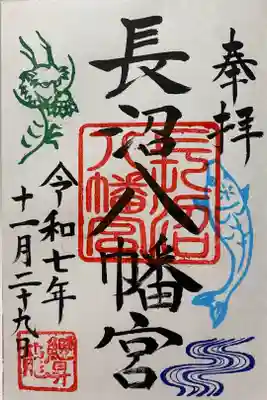 奉拝
長沼八幡宮
長沼八幡宮
令和七年
十一月二十九日